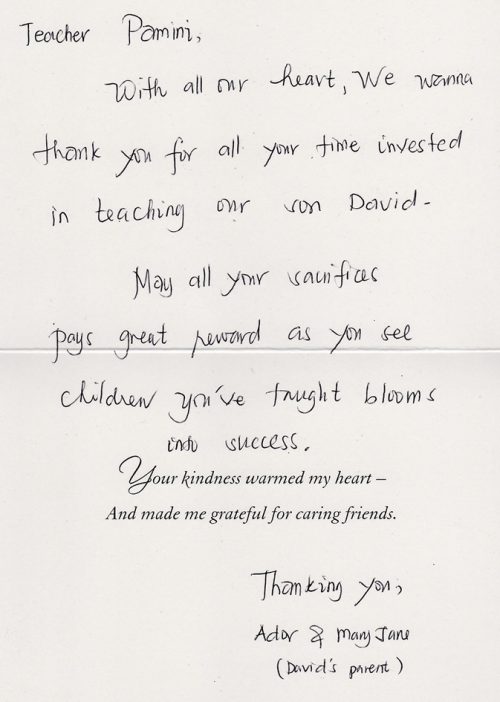 Teacher Pamini,
With all our heart, We wanna
thank you for all your time invested
in teaching our son David-
May all your sacrifices
pays great reward as you see
children you've taught blooms
into success.
Your kindness warmed my heart –
And made me grateful for caring friends.
Thanking you,
Ador & Mary Jane
(David's parent)